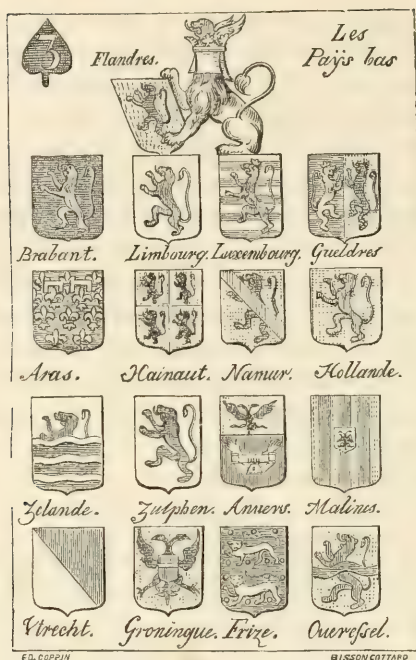 3
Flandres.
Les
Paÿs bas
Brabant. Limbourg. Luxembourg. Gueldres
Aras. Hainaut. Namur. Hollande.
Zelande. Zutphen. Anvers. Malines.
Vtrecht. Groningue. Frize. Oueressel.
ED. COPPIN
BISSON COTTARD